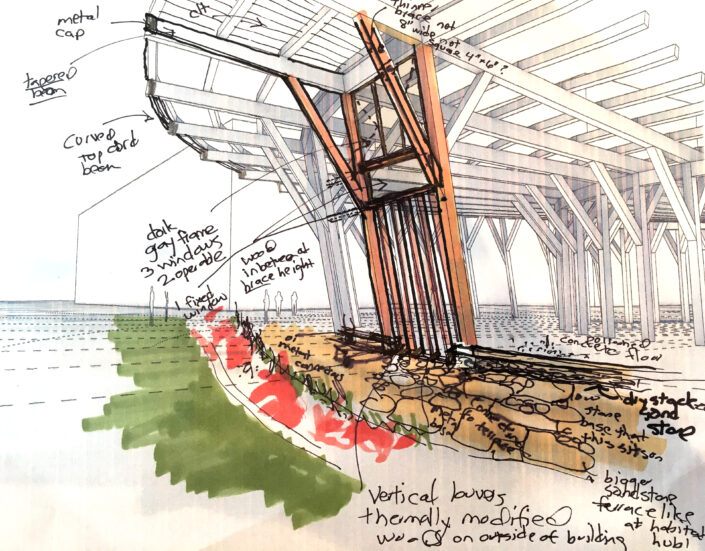 metal
cap
clt
thinner
brace not
8" wide not
square 4"x6"?
tapered
beam
Curved
top cord
beam
dark
gray frame
3 windows
2 operable
1 fixed
window
wood
in between at
brace height
concrete floor
low
stone
base that
this sits on
dry stack
sand
stone
bigger
sandstone
terrace like
at habitat
hub!
vertical louvers
thermally modified
wood on outside of building